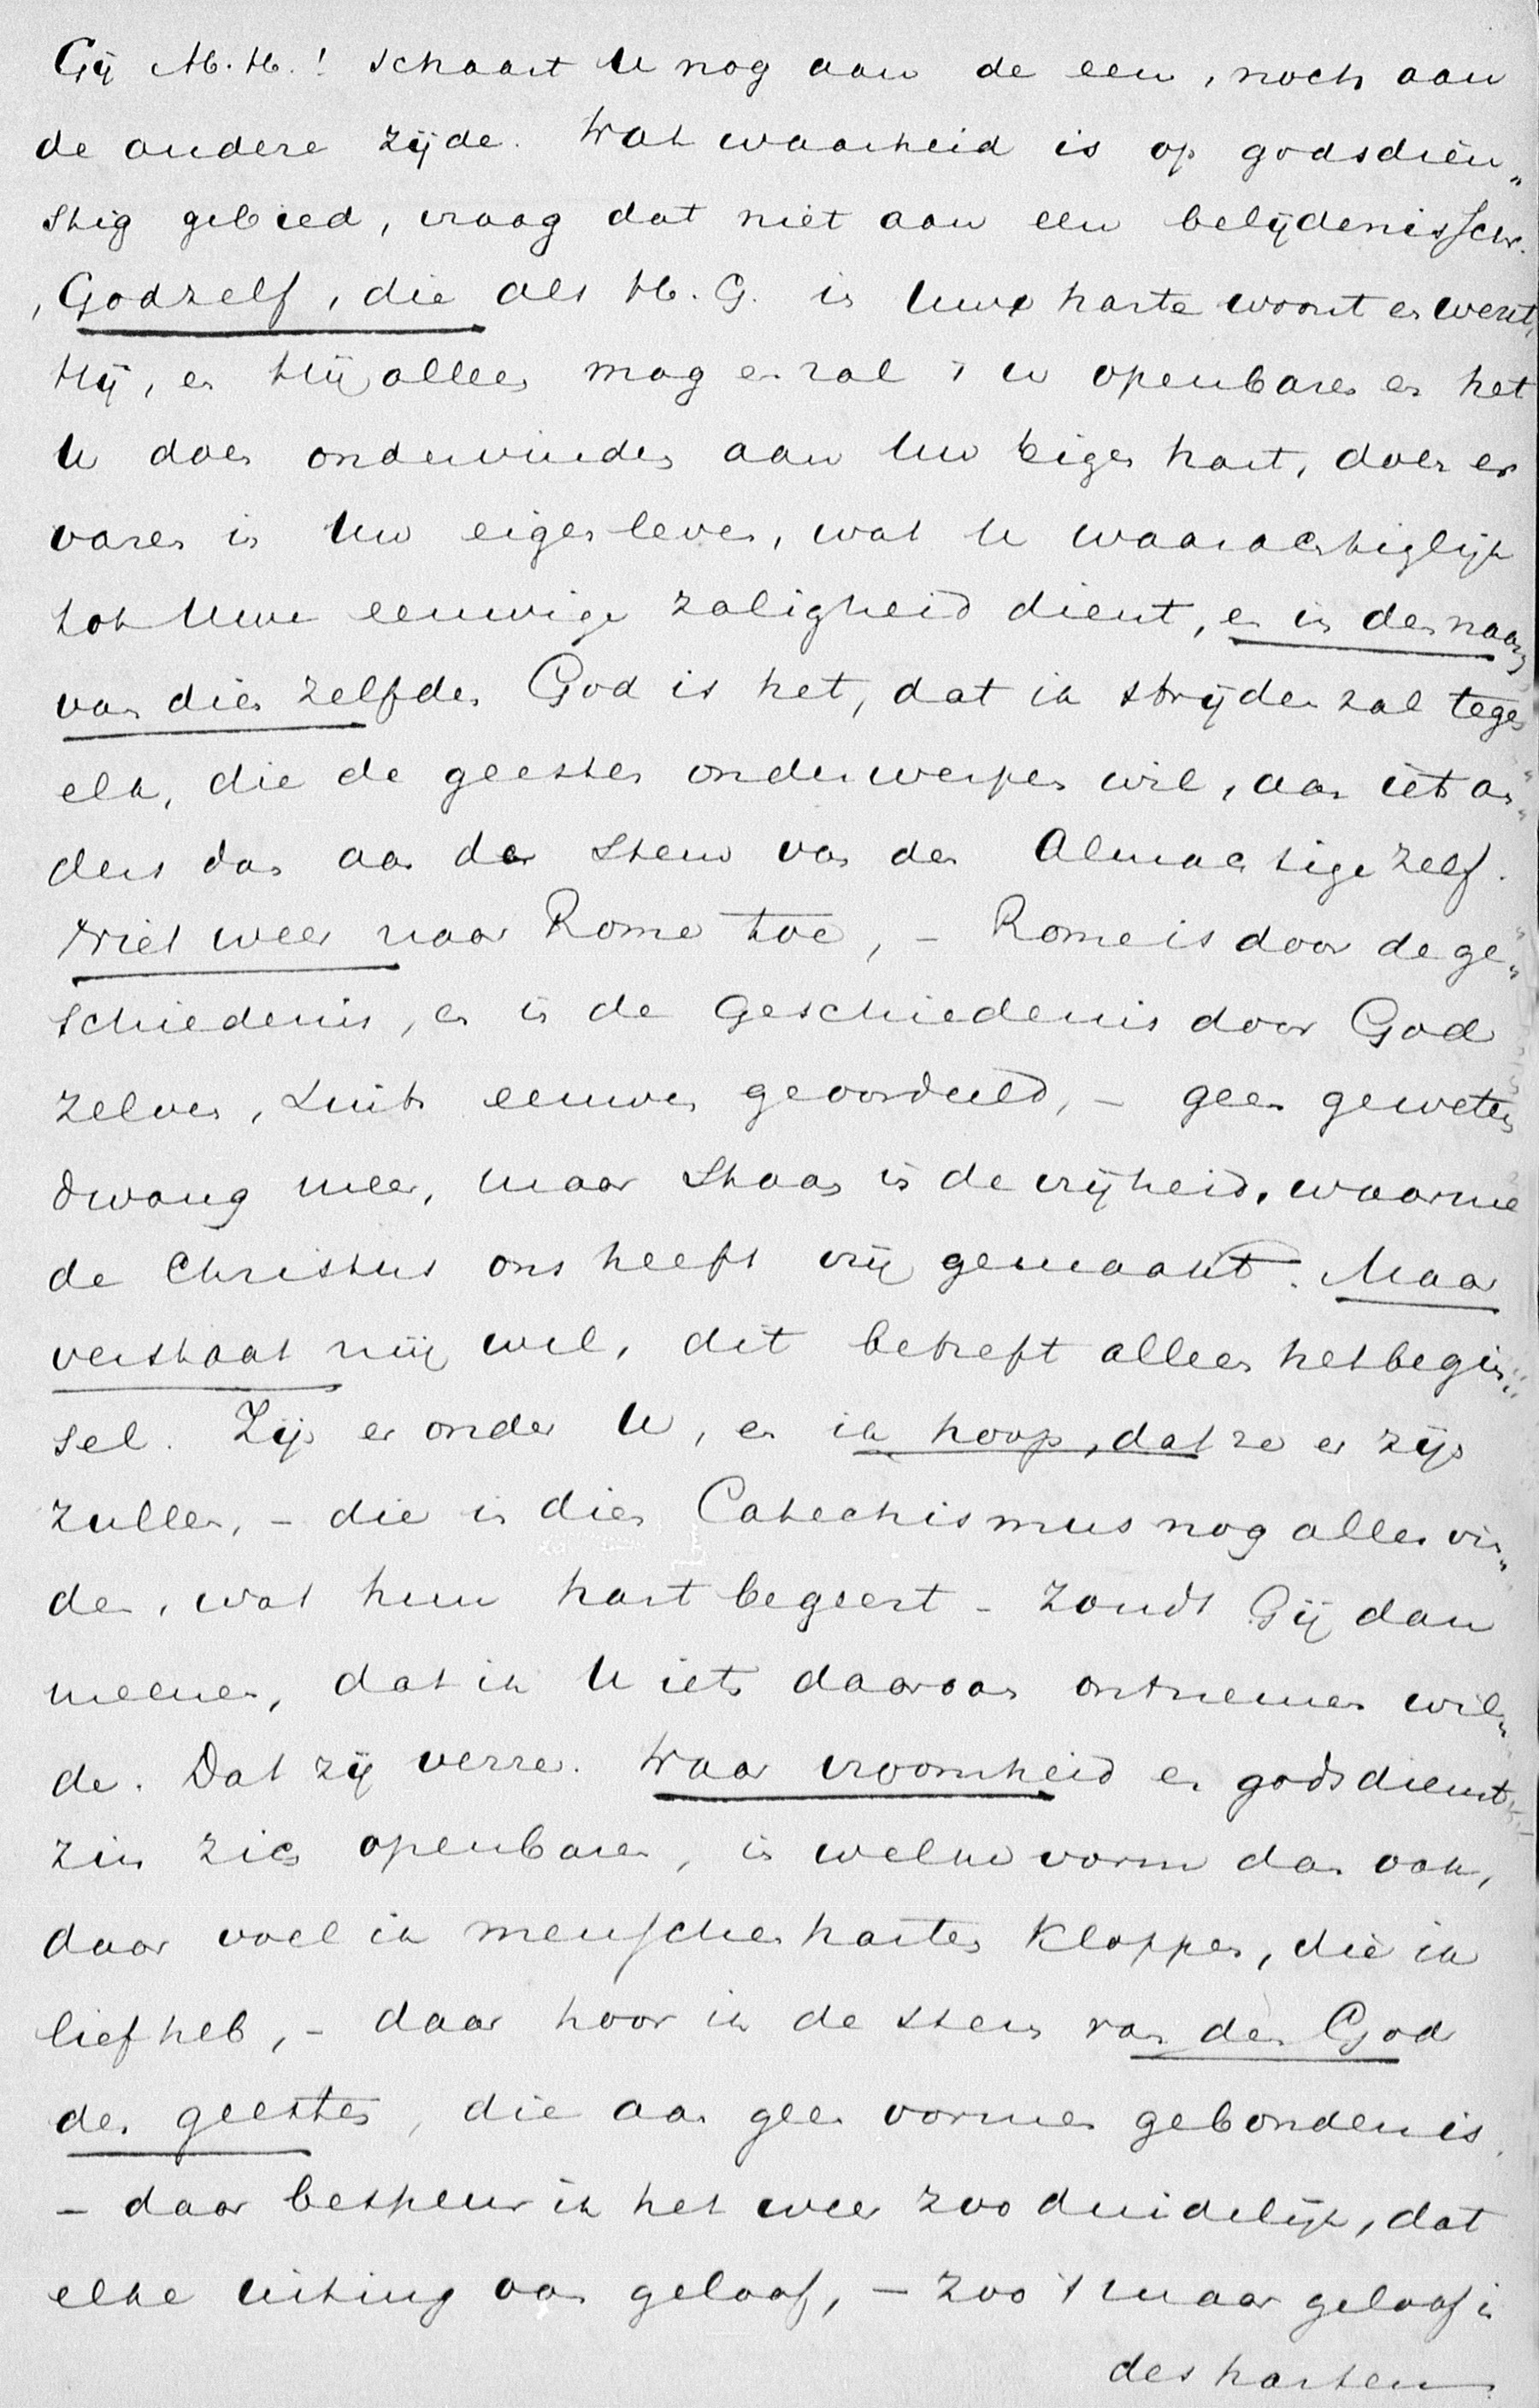 Gij M.H.! schaart U nog aan de een, noch aan
de andere zijde. Wat waarheid is op godsdien„
stig gebied, vraag dat niet aan een belijdenisschr.
, Godzelf, die als H.G. in Uwe harte woont en werkt,
Hij, en Hij alleen mag en zal 't U openbaren en het
U doen ondervinden aan Uw eigen hart, doen er
varen in Uw eigen leven, wat U waarachtiglijk
tot Uwe eeuwige zaligheid dient, en in den naam
van dien zelfden God is het, dat ik strijden zal tegen
elk, die de geesten onderwerpen wil, aan iets an„
ders dan aan de stem van den Almachtige zelf.
Niet weer naar Rome toe, – Rome is door de ge„
schiedenis, en in de geschiedenis door God
zelven, sinds eeuwen geoordeeld, – geen gewetens
dwang meer, maar staan in de vrijheid, waarmee
de Christus ons heeft vrij gemaakt. Maar
verstaat mij wel, dit betreft alleen het begin„
sel. Zijn er onder U, en ik hoop, dat ze er zijn
zullen, – die in dien Catechismus nog alles vin„
den, wat hun hart begeert – zoudt Gij dan
meenen, dat ik U iets daarvan ontnemen wil„
de. Dat zij verre. Waar vroomheid en godsdienst
zin zich openbaren, in welken vorm dan ook,
daar voel ik menschenharten kloppen, die ik
liefheb, – daar hoor ik de stem van den God
der geesten, die aan geen vormen gebonden is,
– daar bespeur ik het weer zoo duidelijk, dat
elke uiting van geloof, – zoo 't maar geloof is
des harten